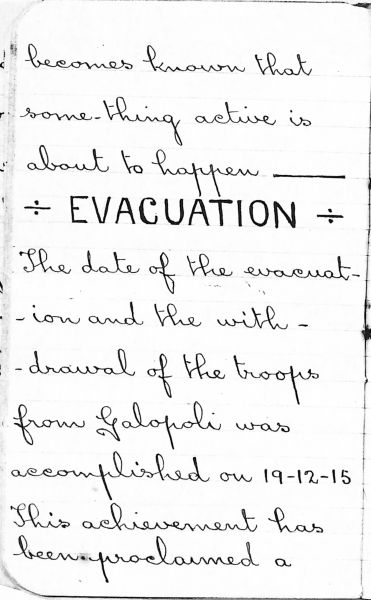 becomes known that
some-thing active is
about to happen ———
÷ EVACUATION ÷
The date of the evacuat-
-ion and the with-
-drawal of the troops
from Galopoli was
accomplished on 19-12-15
This achievement has
been proclaimed a